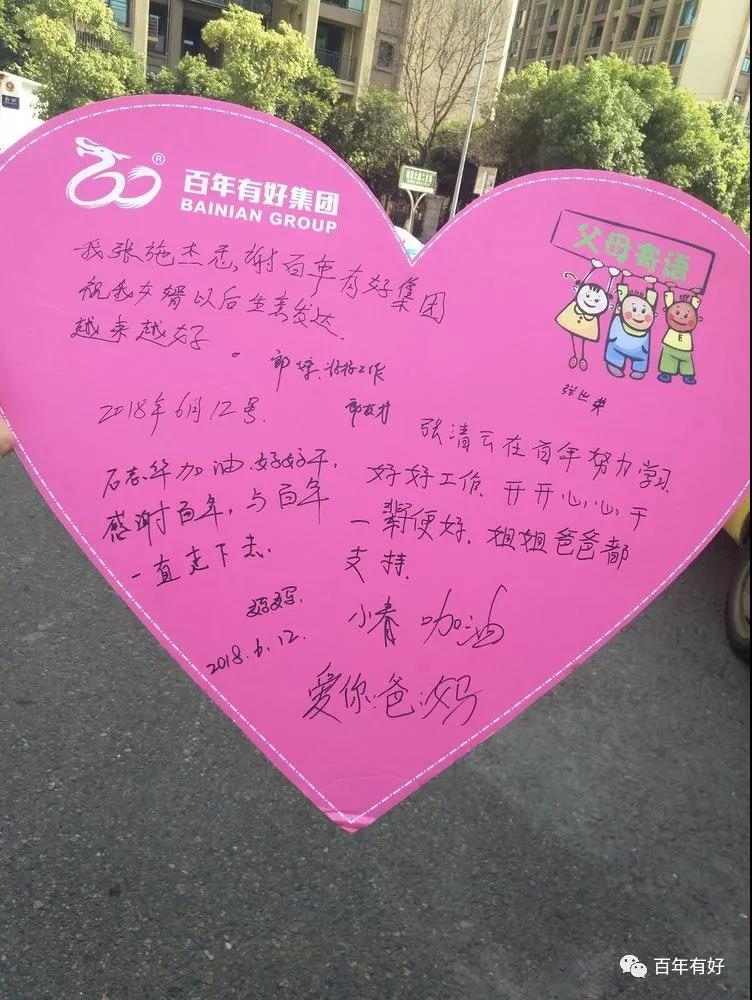 百年有好集团
BAINIAN GROUP
®
父母寄语
我张施杰悉,谢百年有好集团
祝我女婿以后生意发达.
越来越好。
郭婷.好好工作
2018年6月12号.
张世荣
石志华加油.好好干,
感谢百年,与百年
一直走下去.
妈妈.
2018.6.12.
张清云在百年努力学习.
好好工作.开开心心.干
一辈便好.姐姐爸爸都
支持.
小春 加油
爱你.爸.妈
百年有好